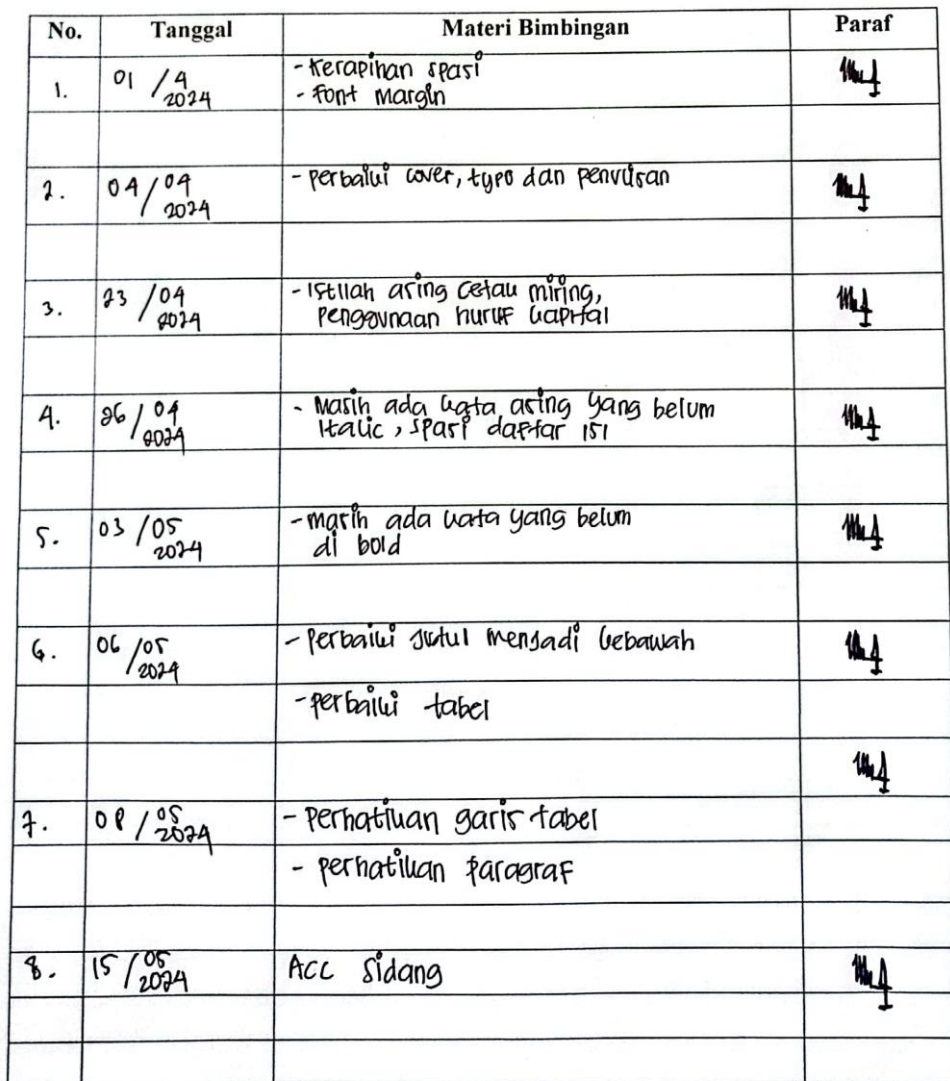 No. Tanggal Materi Bimbingan Paraf
1. 01/4 2024 - Kerapihan spasi
- Font margin
2. 04/04 2024 - perbaiki cover, typo dan penulisan
3. 23/04 2024 - Istilah asing cetak miring,
penggunaan huruf kapital
4. 26/04 2024 - Masih ada kata asing yang belum
Italic, spasi daftar isi
5. 03/05 2024 - masih ada kata yang belum
di bold
6. 06/05 2024 - Perbaiki judul menjadi kebawah
- perbaiki tabel
7. 08/05 2024 - Perhatikan garis tabel
- perhatikan paragraf
8. 15/05 2024 ACC Sidang